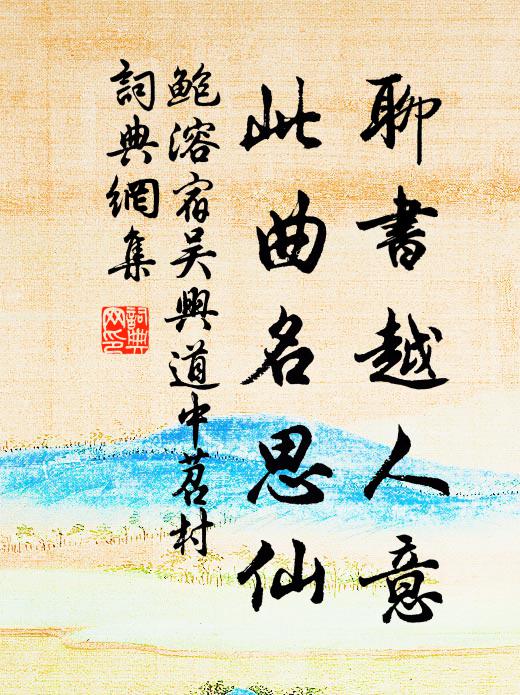 聊書越人意
此曲名思仙
鮑溶宿吴興道中苕村
詞典網集
詞典网印